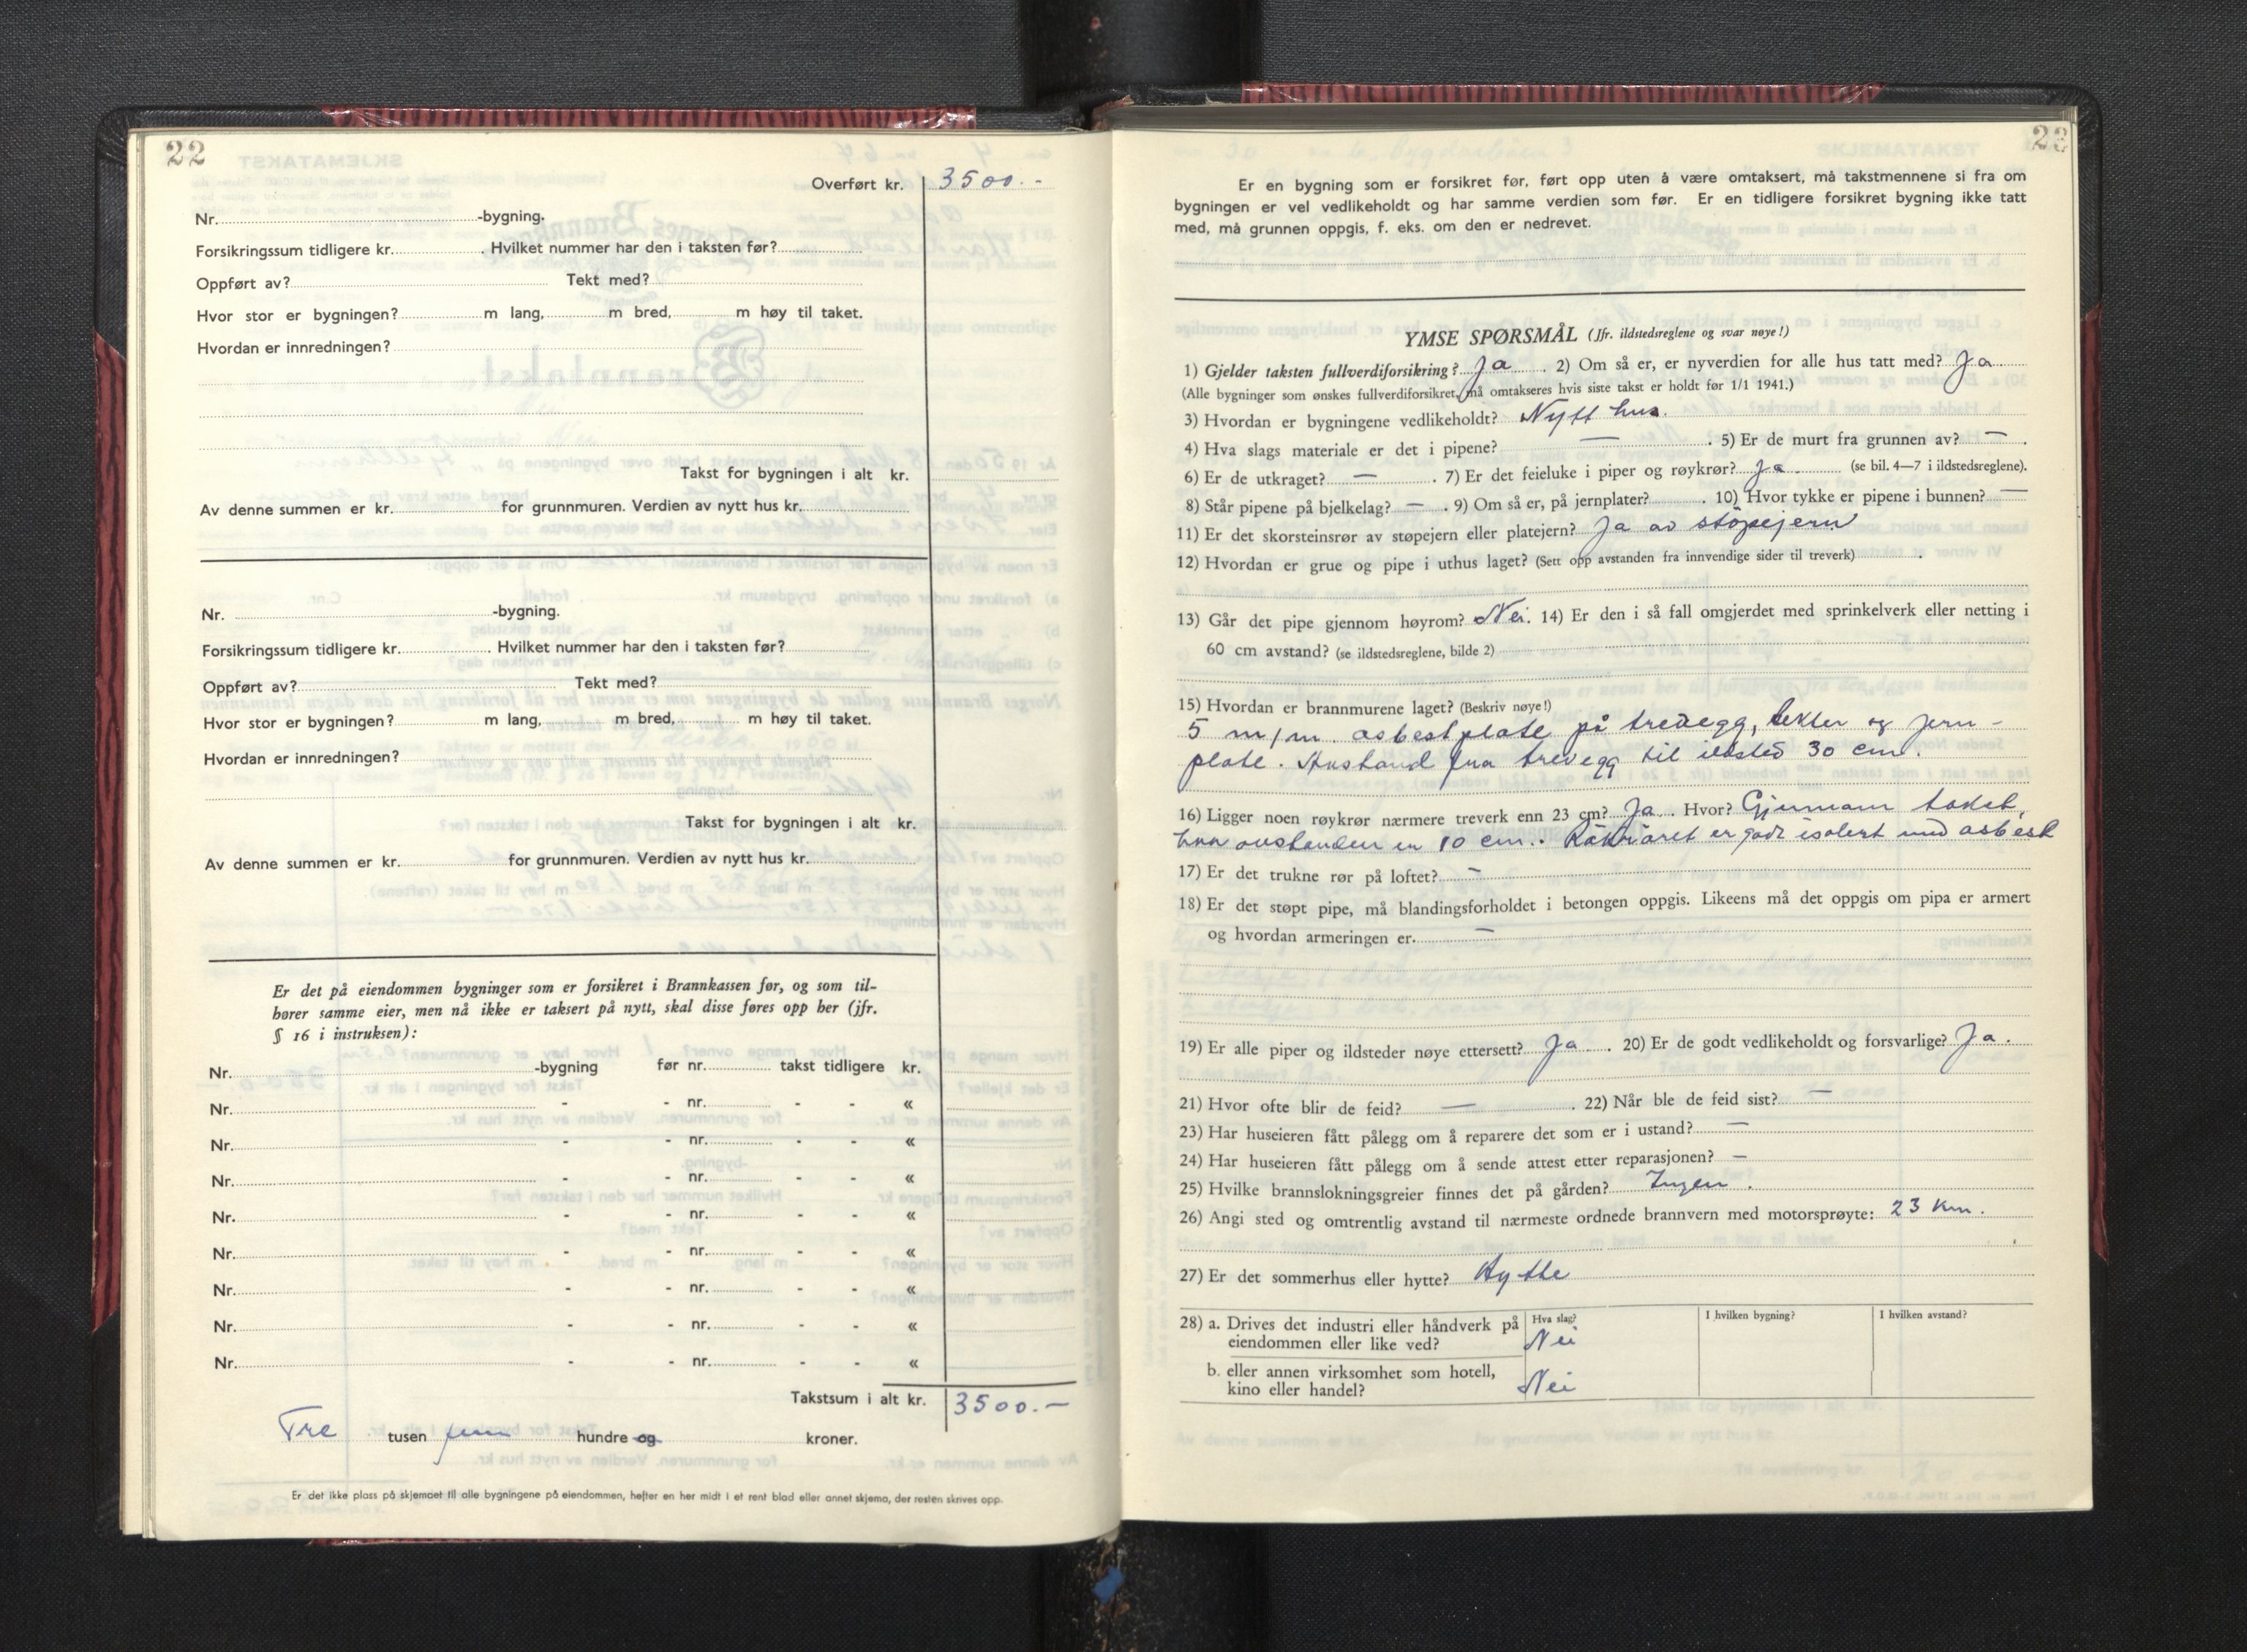 22
Overført kr. 3500.-
Nr. -bygning.
Forsikringssum tidligere kr. . Hvilket nummer har den i taksten før?
Oppført av? Tekt med?
Hvor stor er bygningen? m lang, m bred, m høy til taket.
Hvordan er innredningen?
Takst for bygningen i alt kr.
Av denne summen er kr. for grunnmuren. Verdien av nytt hus kr.
Nr. -bygning.
Forsikringssum tidligere kr. . Hvilket nummer har den i taksten før?
Oppført av? Tekt med?
Hvor stor er bygningen? m lang, m bred, m høy til taket.
Hvordan er innredningen?
Takst for bygningen i alt kr.
Av denne summen er kr. for grunnmuren. Verdien av nytt hus kr.
Er det på eiendommen bygninger som er forsikret i Brannkassen før, og som til-
hører samme eier, men nå ikke er taksert på nytt, skal disse føres opp her (jfr.
§ 16 i instruksen):
Nr. -bygning før nr. takst tidligere kr.
Nr. - - nr. - - «
Nr. - - nr. - - «
Nr. - - nr. - - «
Nr. - - nr. - - «
Nr. - - nr. - - «
Nr. - - nr. - - «
Nr. - - nr. - - «
Nr. - - nr. - - «
Takstsum i alt kr. 3500.-
Tre tusen fem hundre og kroner.
Er det ikke plass på skjemaet til alle bygningene på eiendommen, hefter en her midt i et rent blad eller annet skjema, der resten skrives opp.
23
Er en bygning som er forsikret før, ført opp uten å være omtaksert, må takstmennene si fra om
bygningen er vel vedlikeholdt og har samme verdien som før. Er en tidligere forsikret bygning ikke tatt
med, må grunnen oppgis, f. eks. om den er nedrevet.
YMSE SPØRSMÅL (Jfr. ildstedsreglene og svar nøye!)
1) Gjelder taksten fullverdiforsikring? Ja . 2) Om så er, er nyverdien for alle hus tatt med? Ja
(Alle bygninger som ønskes fullverdiforsikret, må omtakseres hvis siste takst er holdt før 1/1 1941.)
3) Hvordan er bygningene vedlikeholdt? Nytt hus.
4) Hva slags materiale er det i pipene? — . 5) Er de murt fra grunnen av? — .
6) Er de utkraget? — . 7) Er det feieluke i piper og røykrør? Ja. (se bil. 4—7 i ildstedsreglene).
8) Står pipene på bjelkelag? — . 9) Om så er, på jernplater? . 10) Hvor tykke er pipene i bunnen? —
11) Er det skorsteinsrør av støpejern eller platejern? Ja av støpejern
12) Hvordan er grue og pipe i uthus laget? (Sett opp avstanden fra innvendige sider til treverk) .
13) Går det pipe gjennom høyrom? Nei. 14) Er den i så fall omgjerdet med sprinkelverk eller netting i
60 cm avstand? (se ildstedsreglene, bilde 2)
15) Hvordan er brannmurene laget? (Beskriv nøye!)
5 m/m. asbestplate på trevegg, lekter og jern-
plate. Avstand fra trevegg til ildsted 30 cm.
16) Ligger noen røykrør nærmere treverk enn 23 cm? Ja . Hvor? Gjennom taket,
hvor avstanden er 10 cm.. Rökröret er godt isolert med asbest
17) Er det trukne rør på loftet? —
18) Er det støpt pipe, må blandingsforholdet i betongen oppgis. Likeens må det oppgis om pipa er armert
og hvordan armeringen er. —
19) Er alle piper og ildsteder nøye ettersett? Ja . 20) Er de godt vedlikeholdt og forsvarlige? Ja.
21) Hvor ofte blir de feid? — . 22) Når ble de feid sist? —
23) Har huseieren fått pålegg om å reparere det som er i ustand? —
24) Har huseieren fått pålegg om å sende attest etter reparasjonen? —
25) Hvilke brannslokningsgreier finnes det på gården? Ingen.
26) Angi sted og omtrentlig avstand til nærmeste ordnede brannvern med motorsprøyte: 23 km.
27) Er det sommerhus eller hytte? Hytte
28) a. Drives det industri eller håndverk på Hva slag? I hvilken bygning? I hvilken avstand?
eiendommen eller like ved? Nei
b. eller annen virksomhet som hotell,
kino eller handel? Nei